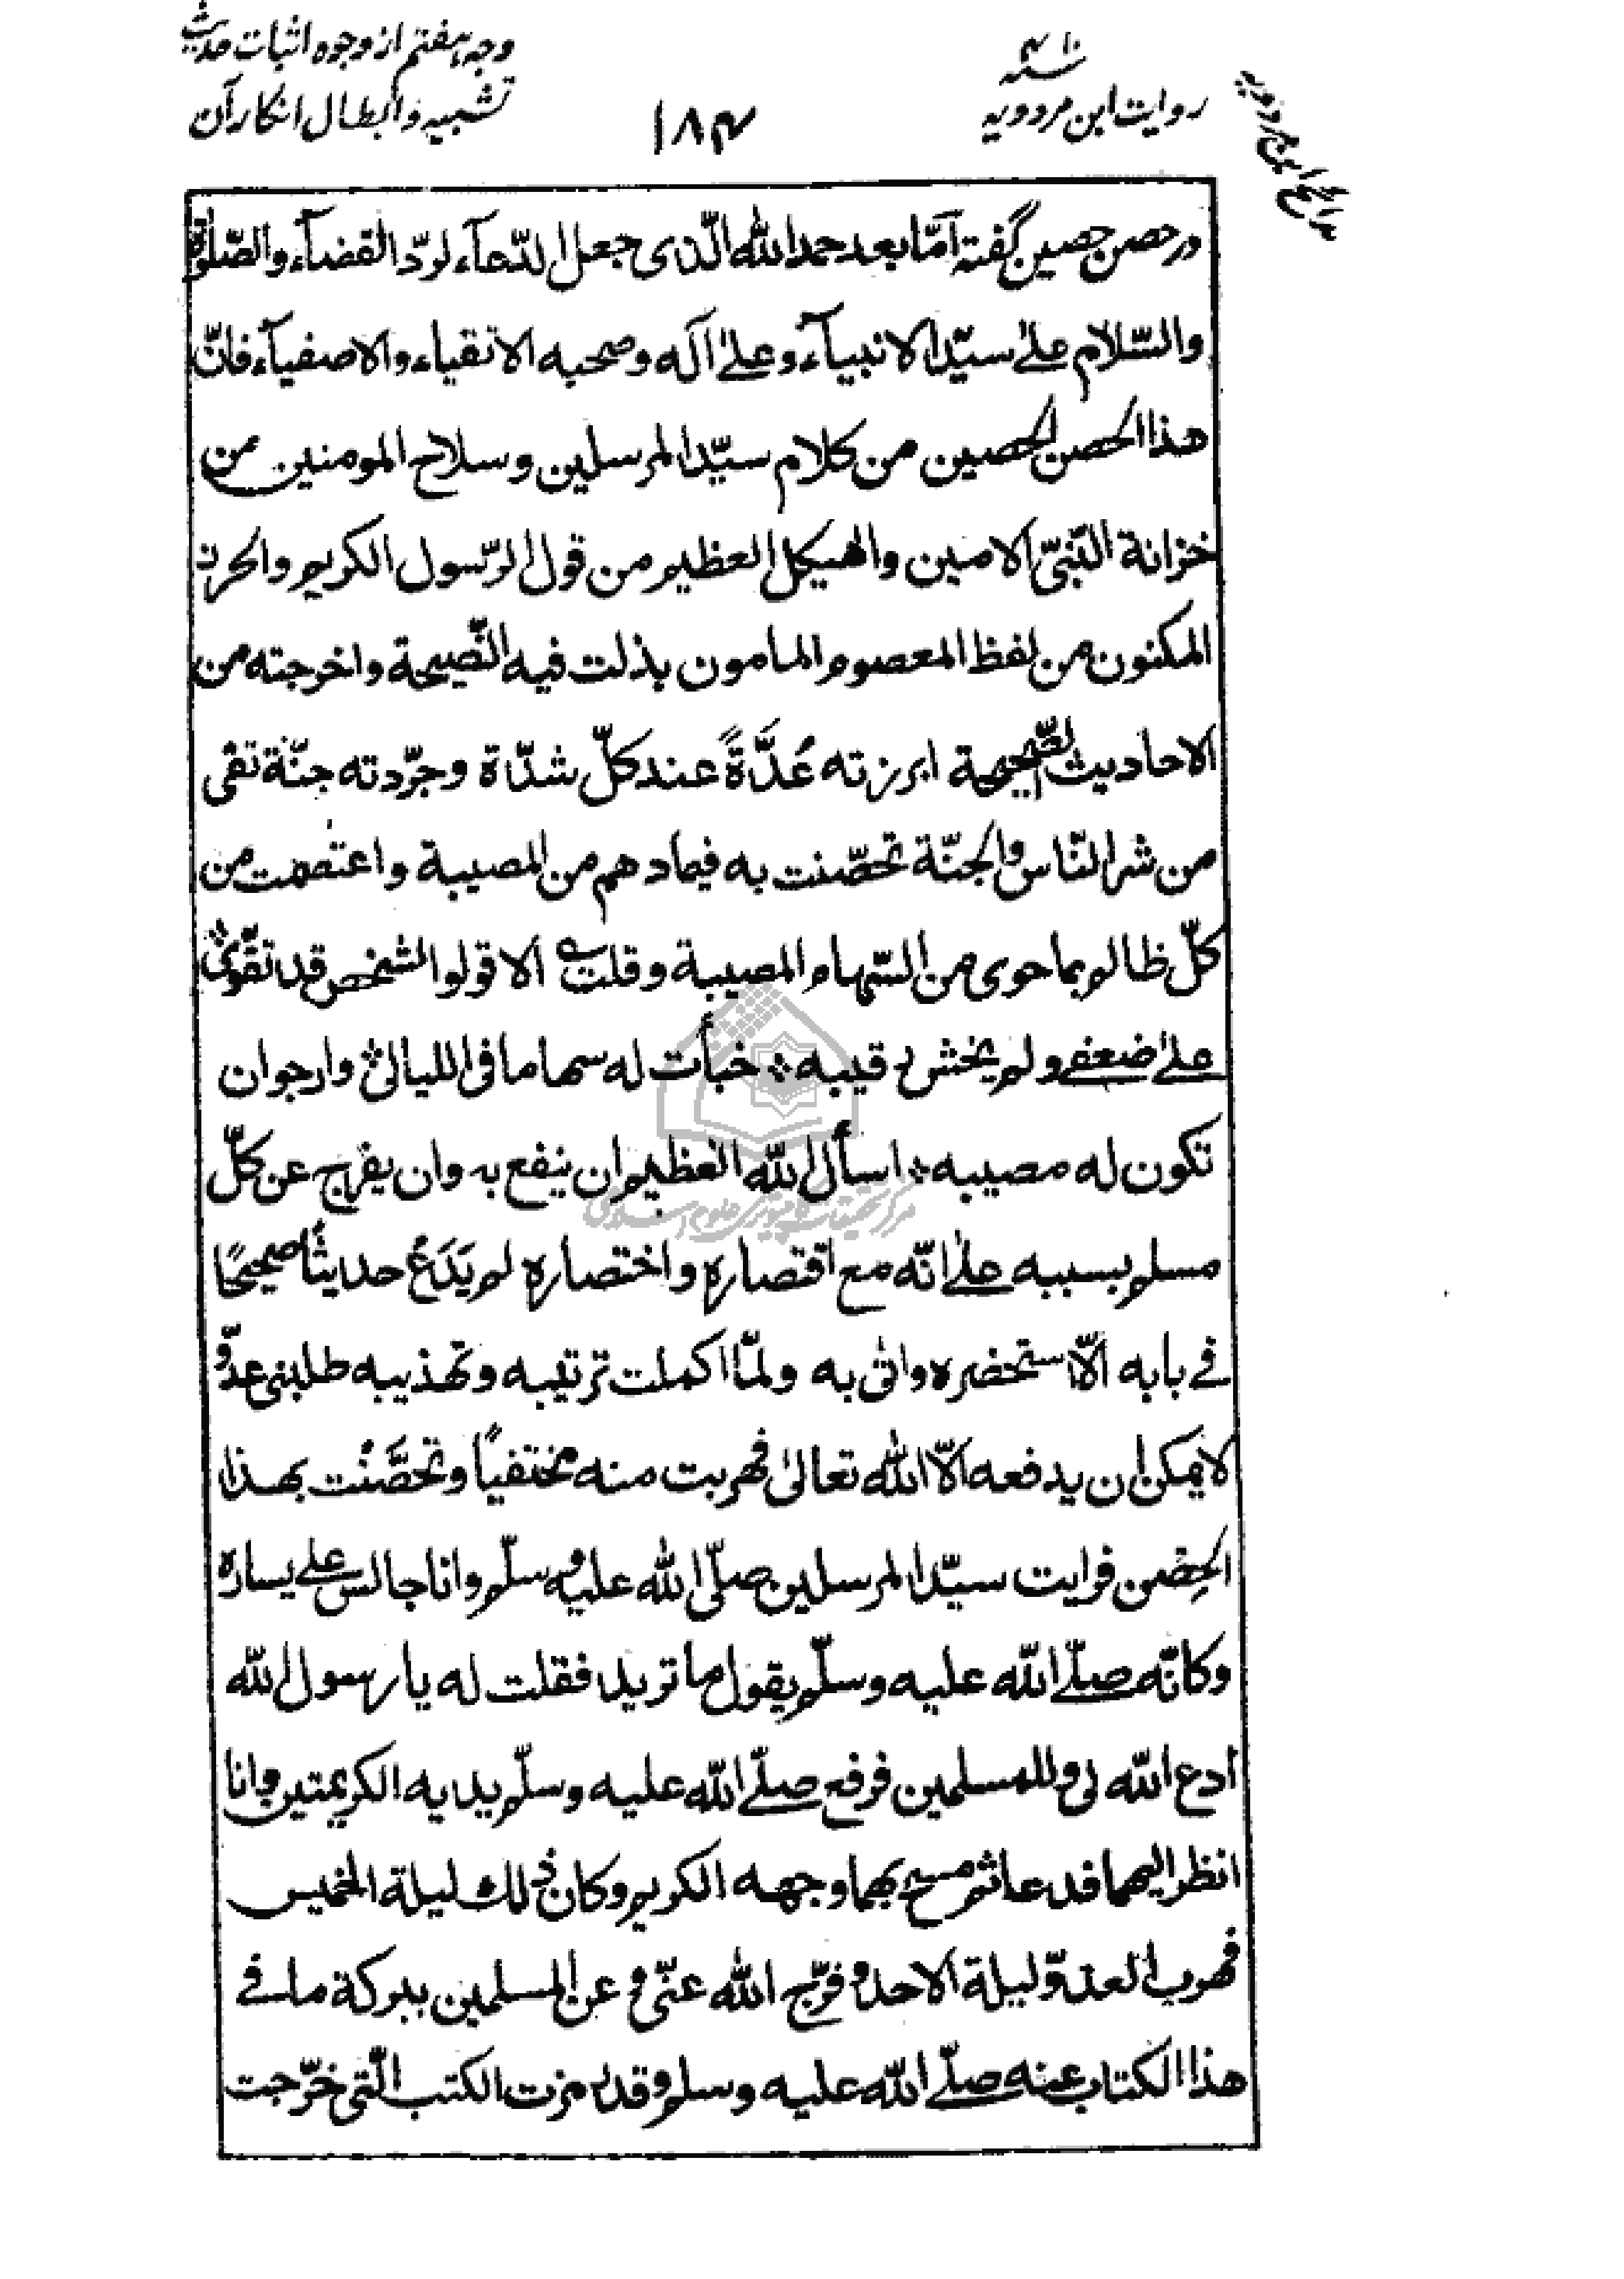 روایت ابن مردویه
۱۸۴
وجه هفتم از وجوه اثبات حدیث
تشبیه و ابطال انکار آن
در حصن حصین گفته امّا بعد حمد الله الّذی جعل الدّعآء لردّ القضآء والصّلوة
والسّلام علی سیّد الانبیآء وعلی آله وصحبه الاتقیاء والاصفیآء فانّ
هذا الحصن الحصین من کلام سیّد المرسلین وسلاح المومنین من
خزانة النّبیّ الامین والهیکل العظیم من قول الرّسول الکریم والحرز
المکنون من لفظ المعصوم المامون بذلت فیه النّصیحة واخرجته من
الاحادیث الصّحیحة ابرزته عُدَّةً عند کلّ شدّة وجرّدته جنّة تقی
من شر النّاس والجنّة تحصّنت به فیما دهم من المصیبة واعتصمت من
کلّ ظالم بما حوی من السّهام المصیبة وقلت الا قولوا لشخص قد تقوّی
علی ضعفی ولم یخش رقیبه خبأت له سهاما فی اللیالی وارجو ان
تکون له مصیبه اسأل الله العظیم ان ینفع به وان یفرج عن کلّ
مسلم بسببه علی انّه مع اقتصاره واختصاره لم یَدَعْ حدیثًا صحیحًا
فی بابه الّا استحضره واتی به ولمّا اکملت ترتیبه وتهذیبه طلبنی عدوّ
لا یمکن ان یدفعه الّا الله تعالی فهربت منه مختفیًا وتحصَّنْت بهذا
الحِصْن فرایت سیّد المرسلین صلّی الله علیه وسلّم وانا جالس علی یساره
وکانّه صلّی الله علیه وسلّم یقول ما ترید فقلت له یا رسول الله
ادع الله لی وللمسلمین فرفع صلّی الله علیه وسلّم یدیه الکریمتین وانا
انظر الیهما فدعا ثم مسح بهما وجهه الکریم وکان ذلک لیلة الخمیس
فهرب العدوّ لیلة الاحد وفرّج الله عنّی وعن المسلمین ببرکة ما فی
هذا الکتاب عنه صلّی الله علیه وسلم وقد رمزت الکتب الّتی خرّجت
مرکز تحقیقات کامپیوتری علوم اسلامی